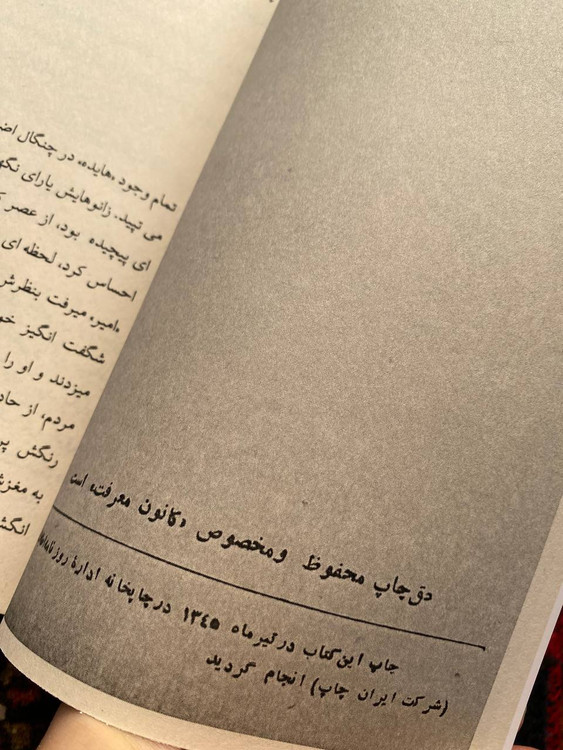 دق چاپ محفوظ ومخصوص «کانون معرفت» است
چاپ این کتاب در تیرماه ۱۳۴۵ در چاپخانه ادارهٔ
(شرکت ایران چاپ) انجام گردید
تمام وجود «هایده» در چنگال
می تپید. زانوهایش یارای
ای پیچیده بود، از عصر
احساس کرد، لحظه ای
«امیر» میرفت بنظرش
شگفت انگیز
میزدند و او را
مردم، از
رنگش
به